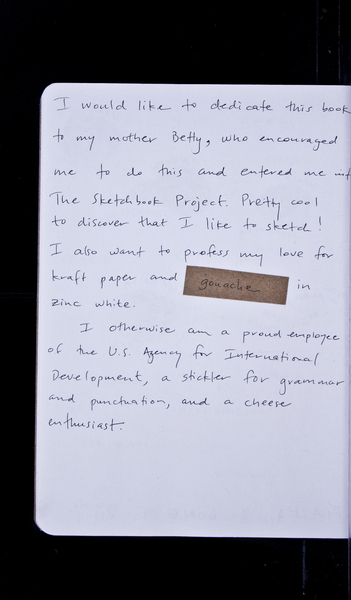 I would like to dedicate this book
to my mother Betty, who encouraged
me to do this and entered me
The Sketchbook Project. Pretty cool
to discover that I like to sketch!
I also want to profess my love for
kraft paper and gouache in
zinc white.
I otherwise am a proud employee
of the U.S. Agency for International
Development, a stickler for grammar
and punctuation, and a cheese
enthusiast.